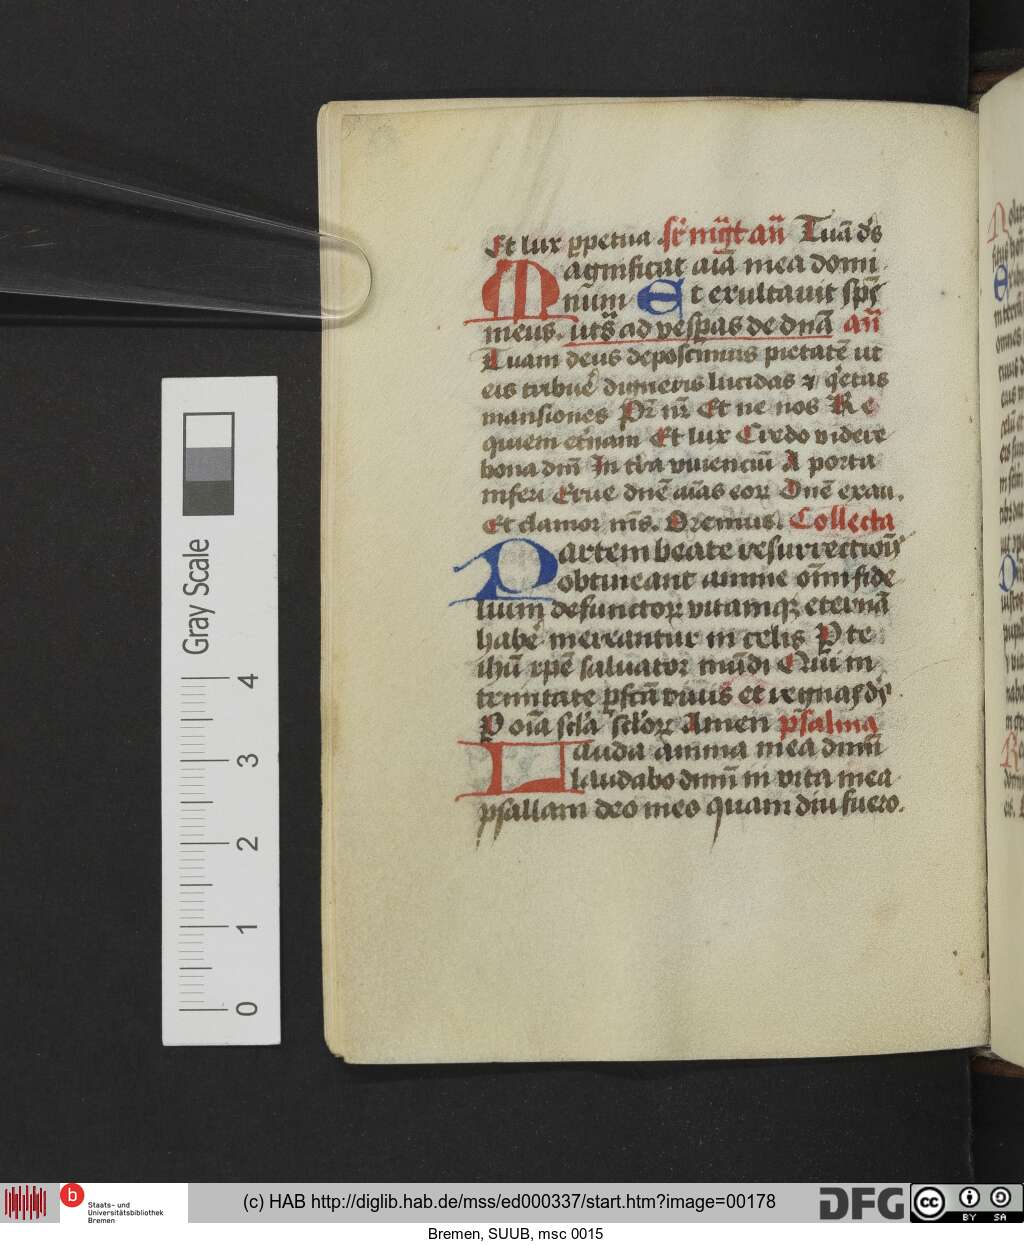 Et lux ꝑpetua sr̄ mgt̄ an̄ Tuā ds̄
Magnificat aīā mea domi
num Et exultauit sps̄
meus. ut sͣ ad vesꝑas de dnā an̄
Tuam deus deposcimus pietatē ut
eis tribuē digneris lucidas ⁊ qͥetas
mansiones Pr̄ nr̄ Et ne nos Re
quiem et̄nam Et lux Credo videre
bona dnī In tr̄a viuenciū A porta
inferi Erue dnē aīas eoꝝ Dnē exau.
Et clamor m̄s. Oremus. Collecta
Partem beate resurrectiōis
obtineant anime om̄i fide
lium defunctoꝝ vitamqꝫ eternā
habē mereantur in celis P te
ihū xpē saluator mūdi Qui in
trinitate ꝑfcā viuis et regnas ds̄
P oīā scl̄a scl̄oꝝ Amen psalmꝰ
Lauda anima mea dnm̄
laudabo dnm̄ in vita mea
psallam deo meo quam diu fuero.
Gray Scale
4
3
2
1
0
b
Staats- und
Universitätsbibliothek
Bremen
(c) HAB http://diglib.hab.de/mss/ed000337/start.htm?image=00178
DFG
cc
BY SA
Bremen, SUUB, msc 0015